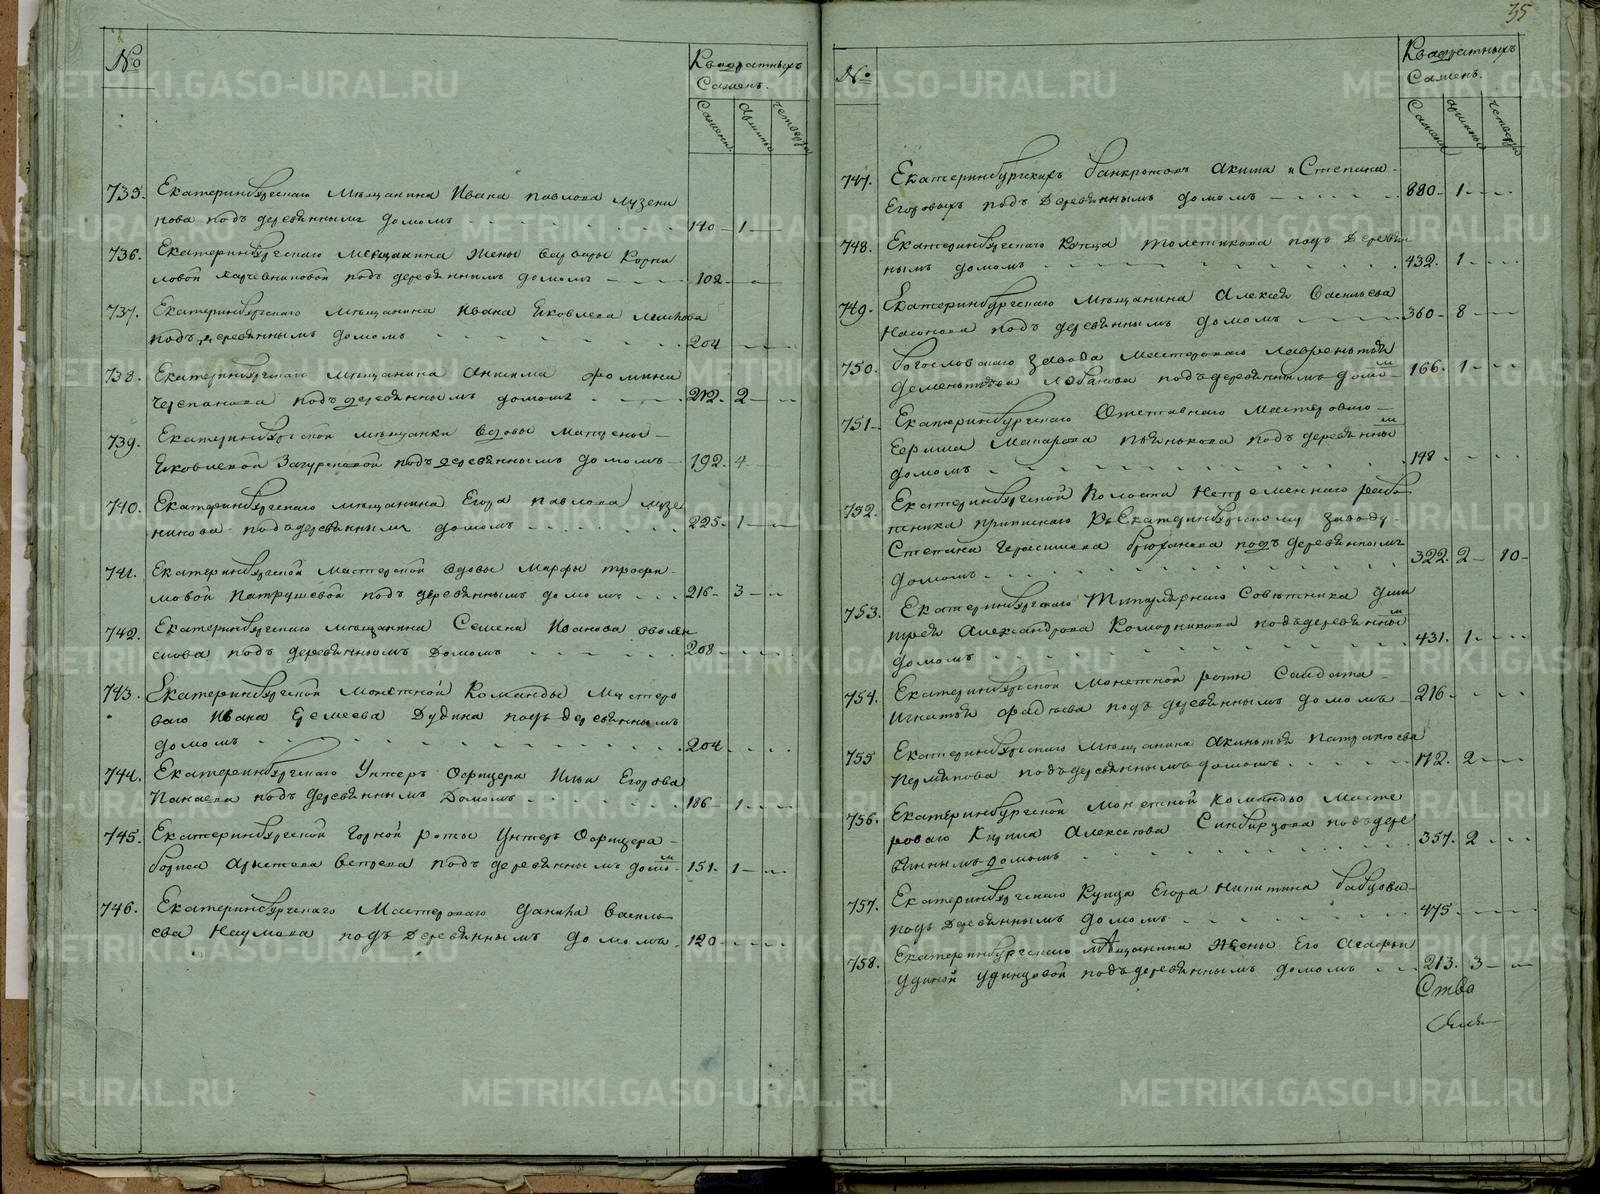 №
Квадратныхъ
Сажень.
Сажени. Аршины Четверти
735. Екатеринбургскаго мѣщанина Ивана Павлова Лузени
нова подъ деревяннымъ домомъ 140 - 1
736. Екатеринбургскаго мѣщанина жены Варвары Корни
ловой Харчевниковой подъ деревяннымъ домомъ 102
737. Екатеринбургскаго мѣщанина Ивана Яковлева
подъ деревяннымъ домомъ 204
738. Екатеринбургскаго мѣщанина Анисима Фомина
Черепанова подъ деревяннымъ домомъ 212. 2
739. Екатеринбургской мѣщанки вдовы Матрены
Яковлевой подъ деревяннымъ домомъ 192. 4
740. Екатеринбургскаго мѣщанина Егора Павлова Лузе
нинова подъ деревяннымъ домомъ 225. 1
741. Екатеринбургской мастерской вдовы Марфы Трофи
мовой Патрушевой подъ деревяннымъ домомъ 216 - 3
742. Екатеринбургскаго мѣщанина Семена Иванова
подъ деревяннымъ домомъ 208
743. Екатеринбургской монетной команды мастеро
ваго Ивана Еремеева Дудина подъ деревяннымъ
домомъ 204
744. Екатеринбургскаго Унтеръ Офицера Ильи Егорова
Панаева подъ деревяннымъ домомъ 186 - 1
745. Екатеринбургской Горной роты Унтеръ Офицера
Бориса подъ деревяннымъ домомъ 151. 1
746. Екатеринбургскаго мастероваго Данила Василь
ева Наумова подъ деревяннымъ домомъ 120
35
№
Квадратныхъ
Сажень.
Сажени Аршины Четверти
747. Екатеринбургскихъ банкротовъ Акима и Степана
Егоровыхъ подъ деревяннымъ домомъ 880 - 1
748. Екатеринбургскаго купца Толстикова подъ деревян
нымъ домомъ 432. 1
749. Екатеринбургскаго мѣщанина Алексея Васильева
Насонова подъ деревяннымъ домомъ 360 - 8
750. Богословскаго завода мастероваго Лаврентья
Дементьева Лобанова подъ деревяннымъ домомъ 166. 1
751. Екатеринбургскаго Отставнаго мастероваго
Макарова Пьянкова подъ деревянны
домомъ 148
752. Екатеринбургской волости Непременнаго рабо
тника приписнаго къ Екатеринбургскому заводу
Степана Герасимова Брюханова подъ деревяннымъ
домомъ 322. 2 - 10
753. Екатеринбургскаго Титулярнаго Советника Дми
трея Александрова Комарникова подъ деревянны
домомъ 431. 1
754. Екатеринбургской монетной роты Салдата
Игнатья Фадеева подъ деревяннымъ домомъ 216
755 Екатеринбургскаго мѣщанина Акинтья
Пермякова подъ деревяннымъ домомъ 172. 2
756. Екатеринбургской монетной команды масте
роваго Кирила Алексеева Синбирцова подъ дере
вяннымъ домомъ 357. 2
757. Екатеринбургскаго купца Егора Никитина Бабцова
подъ деревяннымъ домомъ 475
758. Екатеринбургскаго мѣщанина жены Его Агафьи
Удинцовой подъ деревяннымъ домомъ 213. 3
METRIKI.GASO-URAL.RU